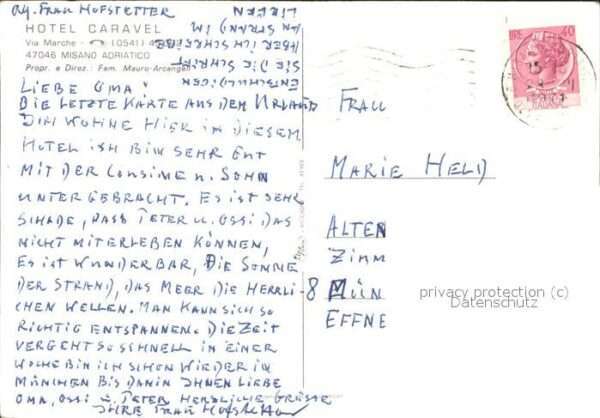 HOTEL CARAVEL
Via Marche - (0541)
47046 MISANO ADRIATICO
Propr. e Direz.: Fam. Mauro-Arcangeli
LIEBE OMA!
DIE LETZTE KARTE AUS DEM URLAUB
ICH WOHNE HIER IN DIESEM
HOTEL ICH BIN SEHR GUT
MIT DER COUSINE U. SOHN
UNTERGEBRACHT. ES IST SEHR
SCHADE, DASS PETER U. OSSI DAS
NICHT MITERLEBEN KÖNNEN,
ES IST WUNDERBAR, DIE SONNE
DER STRAND, DAS MEER DIE HERRLI-
CHEN WELLEN. MAN KANN SICH SO
RICHTIG ENTSPANNEN. DIE ZEIT
VERGEHT SO SCHNELL IN EINER
WOCHE BIN ICH SCHON WIEDER IN
MÜNCHEN BIS DAHIN IHNEN LIEBE
OMA, OSSI U. PETER HERZLICHE GRÜSSE
IHRE FRAU HOFSTETTER
ENTSCHULDIGEN
SIE DIE SCHRIFT
ABER ICH SCHREIBE
AM STRAND IM
LIEGEN
FRAU HOFSTETTER
FRAU
MARIE HELD
ALTEN
ZIMM
8 MÜN
EFFNE
LIRE 40
15
privacy protection (c)
Datenschutz